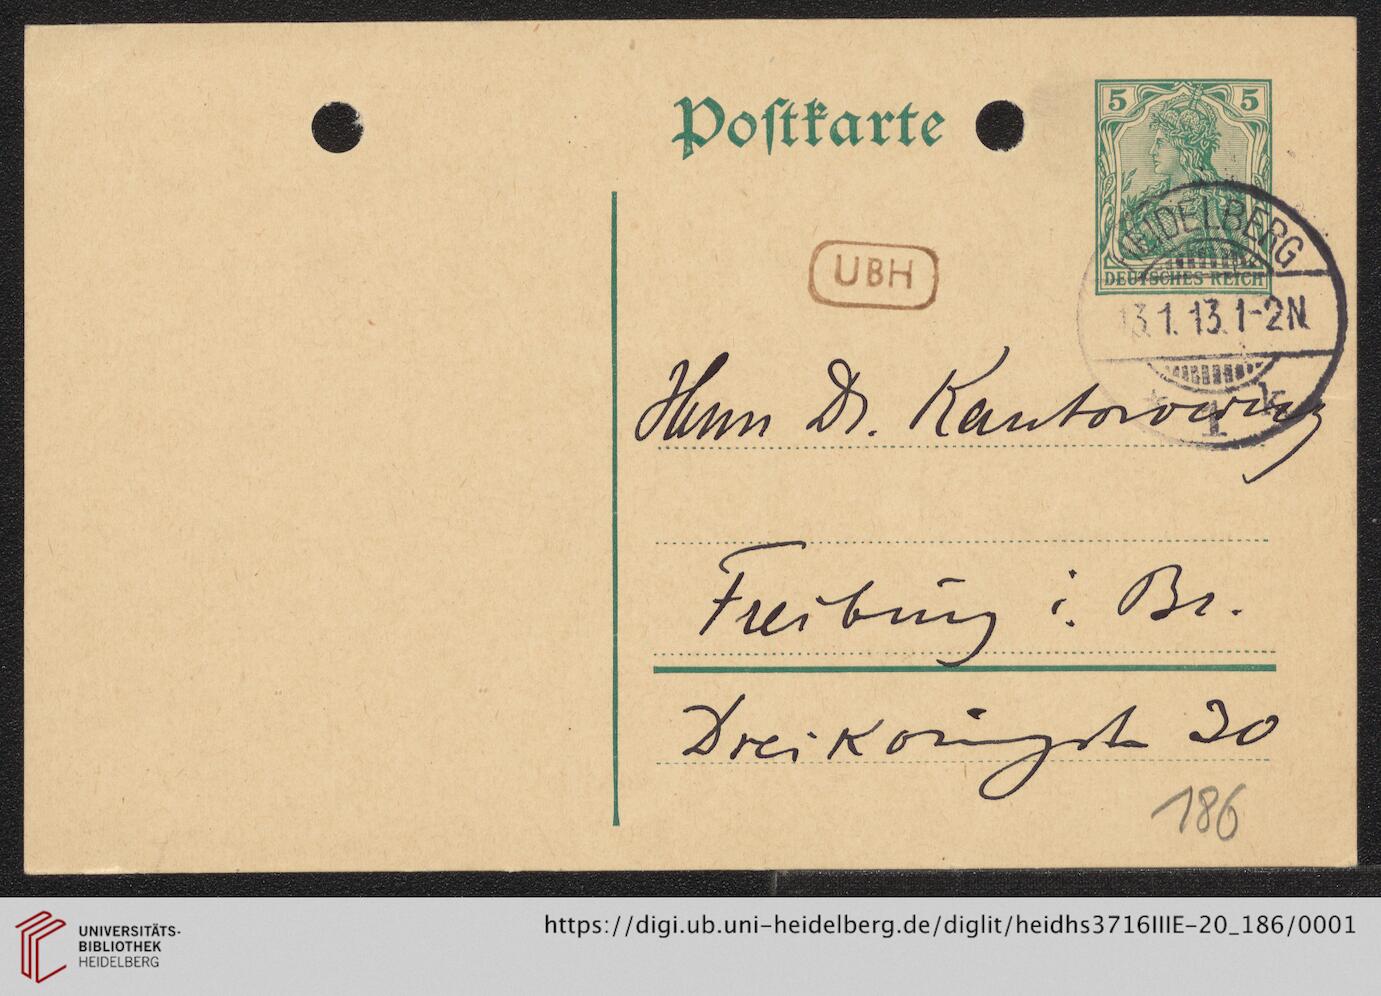 Postkarte
5 5
DEUTSCHES REICH
HEIDELBERG
13.1.13.1-2N.
* 1 k
UBH
Herrn Dr. Kantorowicz
Freiburg i. Br.
Dreikönigstr 30
186
UNIVERSITÄTS-
BIBLIOTHEK
HEIDELBERG
https://digi.ub.uni-heidelberg.de/diglit/heidhs3716IIIE-20_186/0001